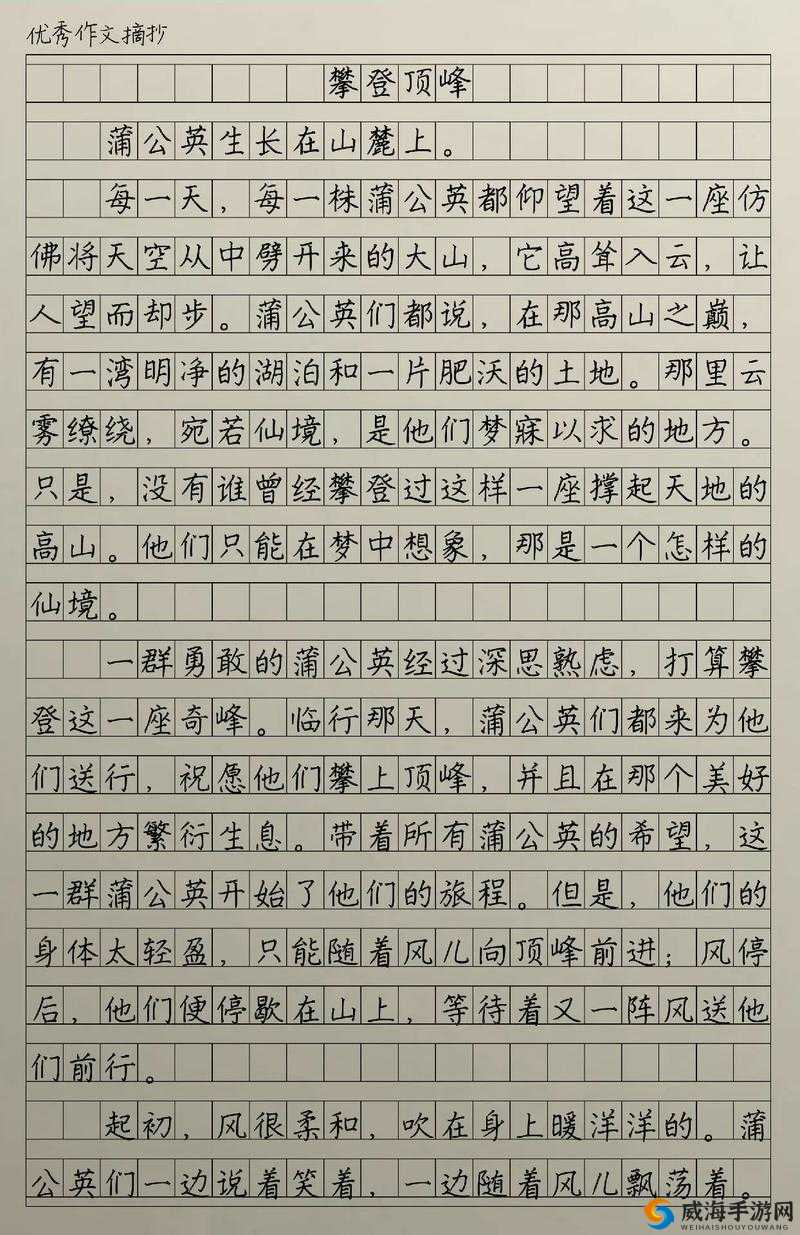 优秀作文摘抄
攀登顶峰
蒲公英生长在山麓上。
每一天，每一株蒲公英都仰望着这一座仿
佛将天空从中劈开来的大山，它高耸入云，让
人望而却步。蒲公英们都说，在那高山之巅，
有一湾明净的湖泊和一片肥沃的土地。那里云
雾缭绕，宛若仙境，是他们梦寐以求的地方。
只是，没有谁曾经攀登过这样一座撑起天地的
高山。他们只能在梦中想象，那是一个怎样的
仙境。
一群勇敢的蒲公英经过深思熟虑，打算攀
登这一座奇峰。临行那天，蒲公英们都来为他
们送行，祝愿他们攀上顶峰，并且在那个美好
的地方繁衍生息。带着所有蒲公英的希望，这
一群蒲公英开始了他们的旅程。但是，他们的
身体太轻盈，只能随着风儿向顶峰前进；风停
后，他们便停歇在山上，等待着又一阵风送他
们前行。
起初，风很柔和，吹在身上暖洋洋的。蒲
公英们一边说着笑着，一边随着风儿飘荡着。
威海手游网
WEIHAISHOUYOUWANG